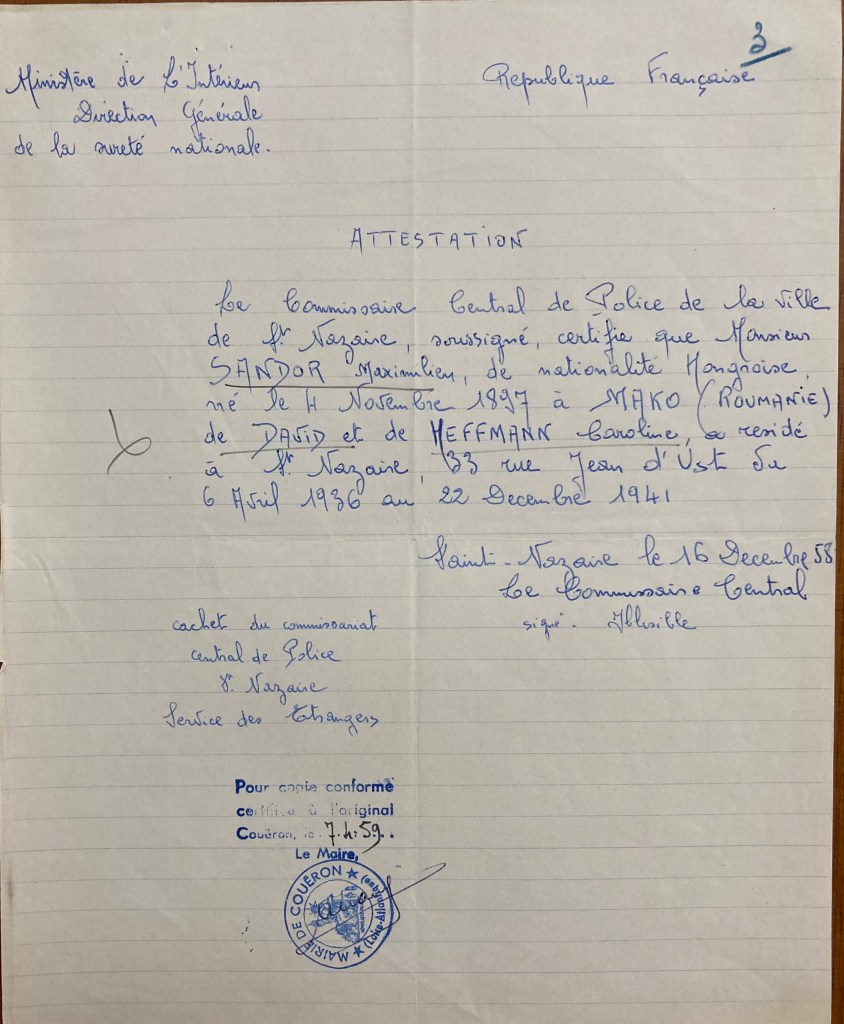 3
Ministère de l'Intérieur
Republique Française
Direction Générale
de la sureté nationale.
ATTESTATION
Le Commissaire Central de Police de la ville
de St Nazaire, soussigné, certifie que Monsieur
SANDOR Maximilien, de nationalité Hongroise,
né le 4 Novembre 1897 à MAKO (ROUMANIE)
de DAVID et de HEFFMANN Caroline, a residé
à St Nazaire, 33 rue Jean d'Ust du
6 Avril 1936 au 22 Decembre 1941
Saint-Nazaire le 16 Decembre 58
Le Commissaire Central
signé. Illisible
cachet du commissariat
central de Police
St Nazaire
Service des Etrangers
Pour copie conforme
certifiée à l'original
Couëron, le 7.4.59.
Le Maire,
MAIRIE DE COUËRON ★ (Loire-Atlantique) ★